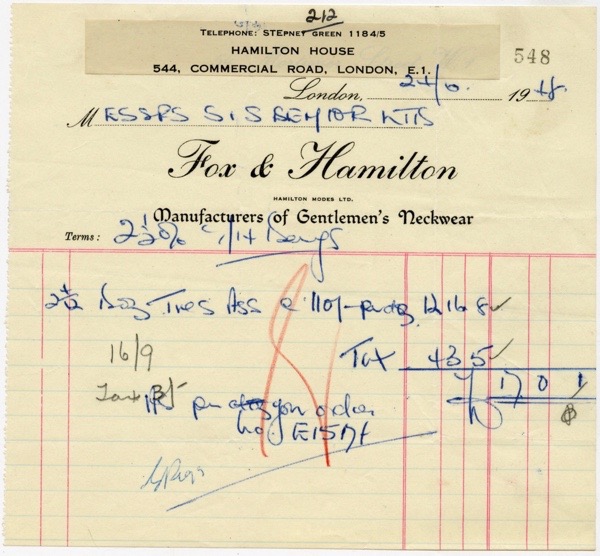 212
TELEPHONE: STEPNEY GREEN 1184/5
HAMILTON HOUSE
544, COMMERCIAL ROAD, LONDON, E.1.
548
London, 19 48
MESSRS
Fox & Hamilton
HAMILTON MODES LTD.
Manufacturers of Gentlemen's Neckwear
Terms: 2½%
Doz Ties Ass @ 110/- per doz 12 16 8
16/9
Tax 4 3 5
17 0 1
per doz your order
no. E157